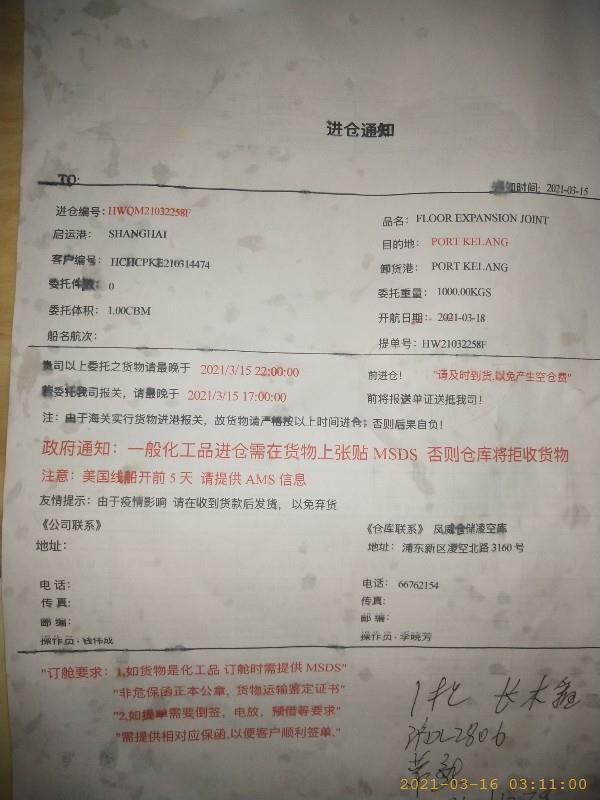 进仓通知
TO:
时间: 2021-03-15
进仓编号: HWQM21032258F
品名: FLOOR EXPANSION JOINT
启运港: SHANGHAI
目的地: PORT KELANG
客户编号: HCHCPKE210314474
卸货港: PORT KELANG
委托件数: 0
委托重量: 1000.00KGS
委托体积: 1.00CBM
开航日期: 2021-03-18
船名航次:
提单号: HW21032258F
贵司以上委托之货物请最晚于 2021/3/15 22:00:00 前进仓! "请及时到货,以免产生空仓费"
若委托我司报关, 请最晚于 2021/3/15 17:00:00 前将报送单证送抵我司!
注: 由于海关实行货物进港报关, 故货物请严格按以上时间进仓; 否则后果自负!
政府通知: 一般化工品进仓需在货物上张贴 MSDS 否则仓库将拒收货物
注意: 美国线船开前 5 天 请提供 AMS 信息
友情提示: 由于疫情影响 请在收到货款后发货, 以免弃货
《公司联系》
《仓库联系》 凤威仓储凌空库
地址:
地址: 浦东新区凌空北路 3160 号
电话:
电话: 66762154
传真:
传真:
邮编:
邮编:
操作员: 钱伟成
操作员: 季晓芳
"订舱要求: 1,如货物是化工品 订舱时需提供 MSDS"
"非危保函正本公章, 货物运输鉴定证书"
"2,如提单需要倒签, 电放, 预借等要求"
"需提供相对应保函,以便客户顺利签单."
2021-03-16 03:11:00